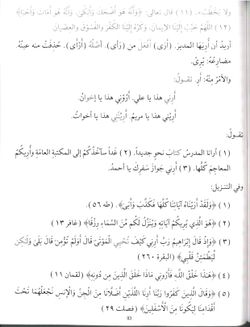 ولا يخطئ». (١١) قال تعالى: ﴿وأنه هو أضحك وأبكى. وأنه هو أمات وأحيا﴾
(١٢) اللهم حبب إلينا الإيمان، وكره إلينا الكفر والفسوق والعصيان
أريد أن أريها المدير. (أرى) أفعل من (رأى). أصله (أرأى). حذفت منه عينه.
مضارعه: يري.
والأمر منه: أر. تقول:
أرني هذا يا علي. أروني هذا يا إخوان.
أريني هذا يا مريم. أرينني هذا يا أخوات.
تقول:
(١) أرانا المدرس كتاب نحو جديدا. (٢) غدا سآخذكم إلى المكتبة العامة وأريكم
المعاجم كلها. (٣) أرني جواز سفرك يا أحمد.
وفي التنزيل:
(١) ﴿ولقد أريناه آياتنا كلها فكذب وأبى﴾. (طه ٥٦)
(٢) ﴿هو الذي يريكم آياته وينزل لكم من السماء رزقا﴾ (غافر ١٣)
(٣) ﴿وإذ قال إبراهيم رب أرني كيف تحيي الموتى قال أولم تؤمن قال بلى ولكن
ليطمئن قلبي﴾ (البقرة ٢٦٠)
(٤) ﴿هذا خلق الله فأروني ماذا خلق الذين من دونه﴾ (لقمان ١١)
(٥) ﴿وقال الذين كفروا ربنا أرنا اللذين أضلانا من الجن والإنس نجعلهما تحت
أقدامنا ليكونا من الأسفلين﴾ (فصلت ٢٩)